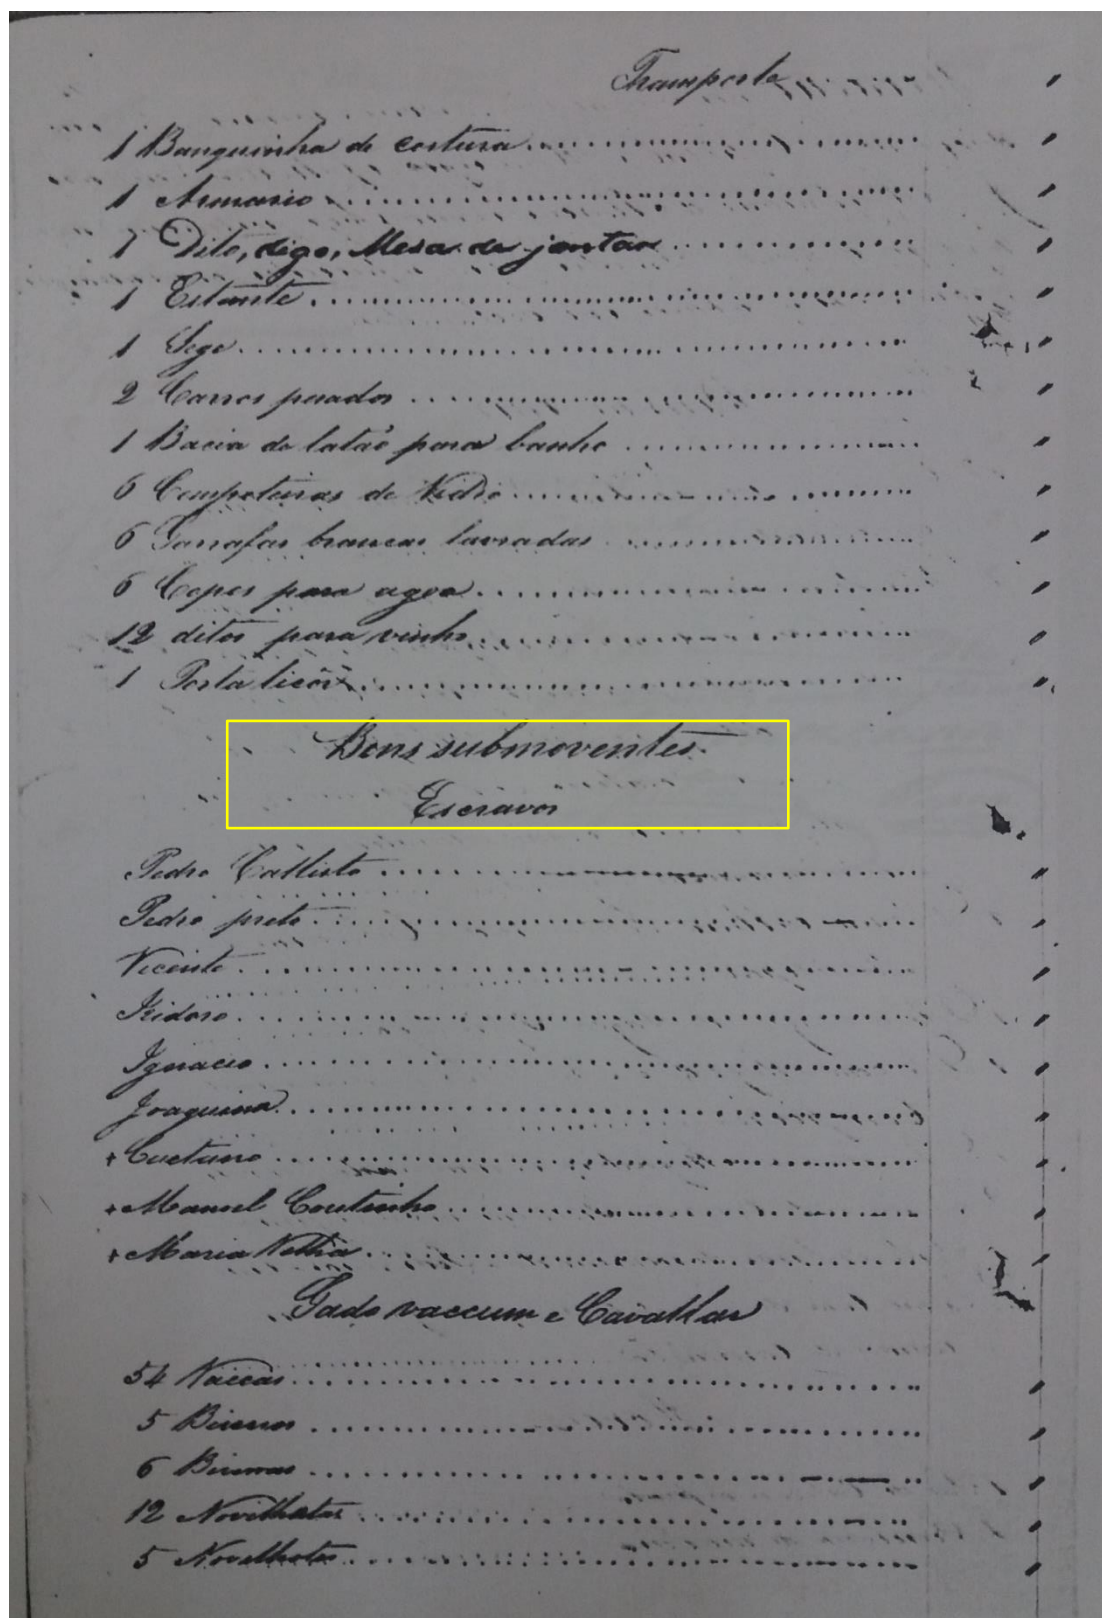 Transporte
1 Banquinha de costura
1 Armario
1 Dito, digo, Mesa de jantar
1 Estante
1 Sege
2 Carros pesados
1 Bacia de latão para banho
6 Compoteiras de Vidro
6 Garrafas brancas lavradas
6 Copos para agoa
12 ditos para vinho
1 Porta licôr
Bens submoventes
Escravos
Pedro Callisto
Pedro preto
Vicente
Izidoro
Ignacio
Joaquina
+ Caetano
+ Manoel Coutinho
+ Maria Velha
Gado vaccum e Cavallar
54 Vaccas
5 Bicerros
6 Bicerras
12 Novilhatas
5 Novilhotes